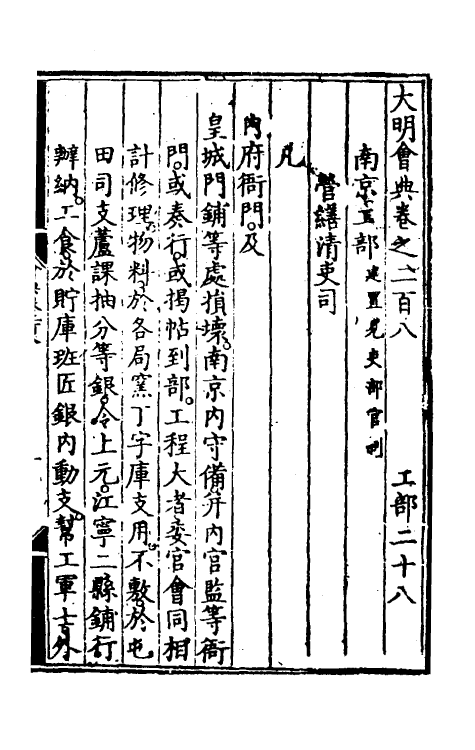 大明會典卷之二百八　工部二十八
南京工部 建置見吏部官制
營繕清吏司
凡
內府衙門。及
皇城門鋪等處損壞。南京內守備并內官監等衙
門。或奏行。或揭帖到部。工程大者委官會同相
計修理。物料於各局窯丁字庫支用。不敷。於屯
田司支蘆課抽分等銀。令上元。江寧二縣鋪行
辦納。工食於貯庫班匠銀內動支。幫工軍士。外